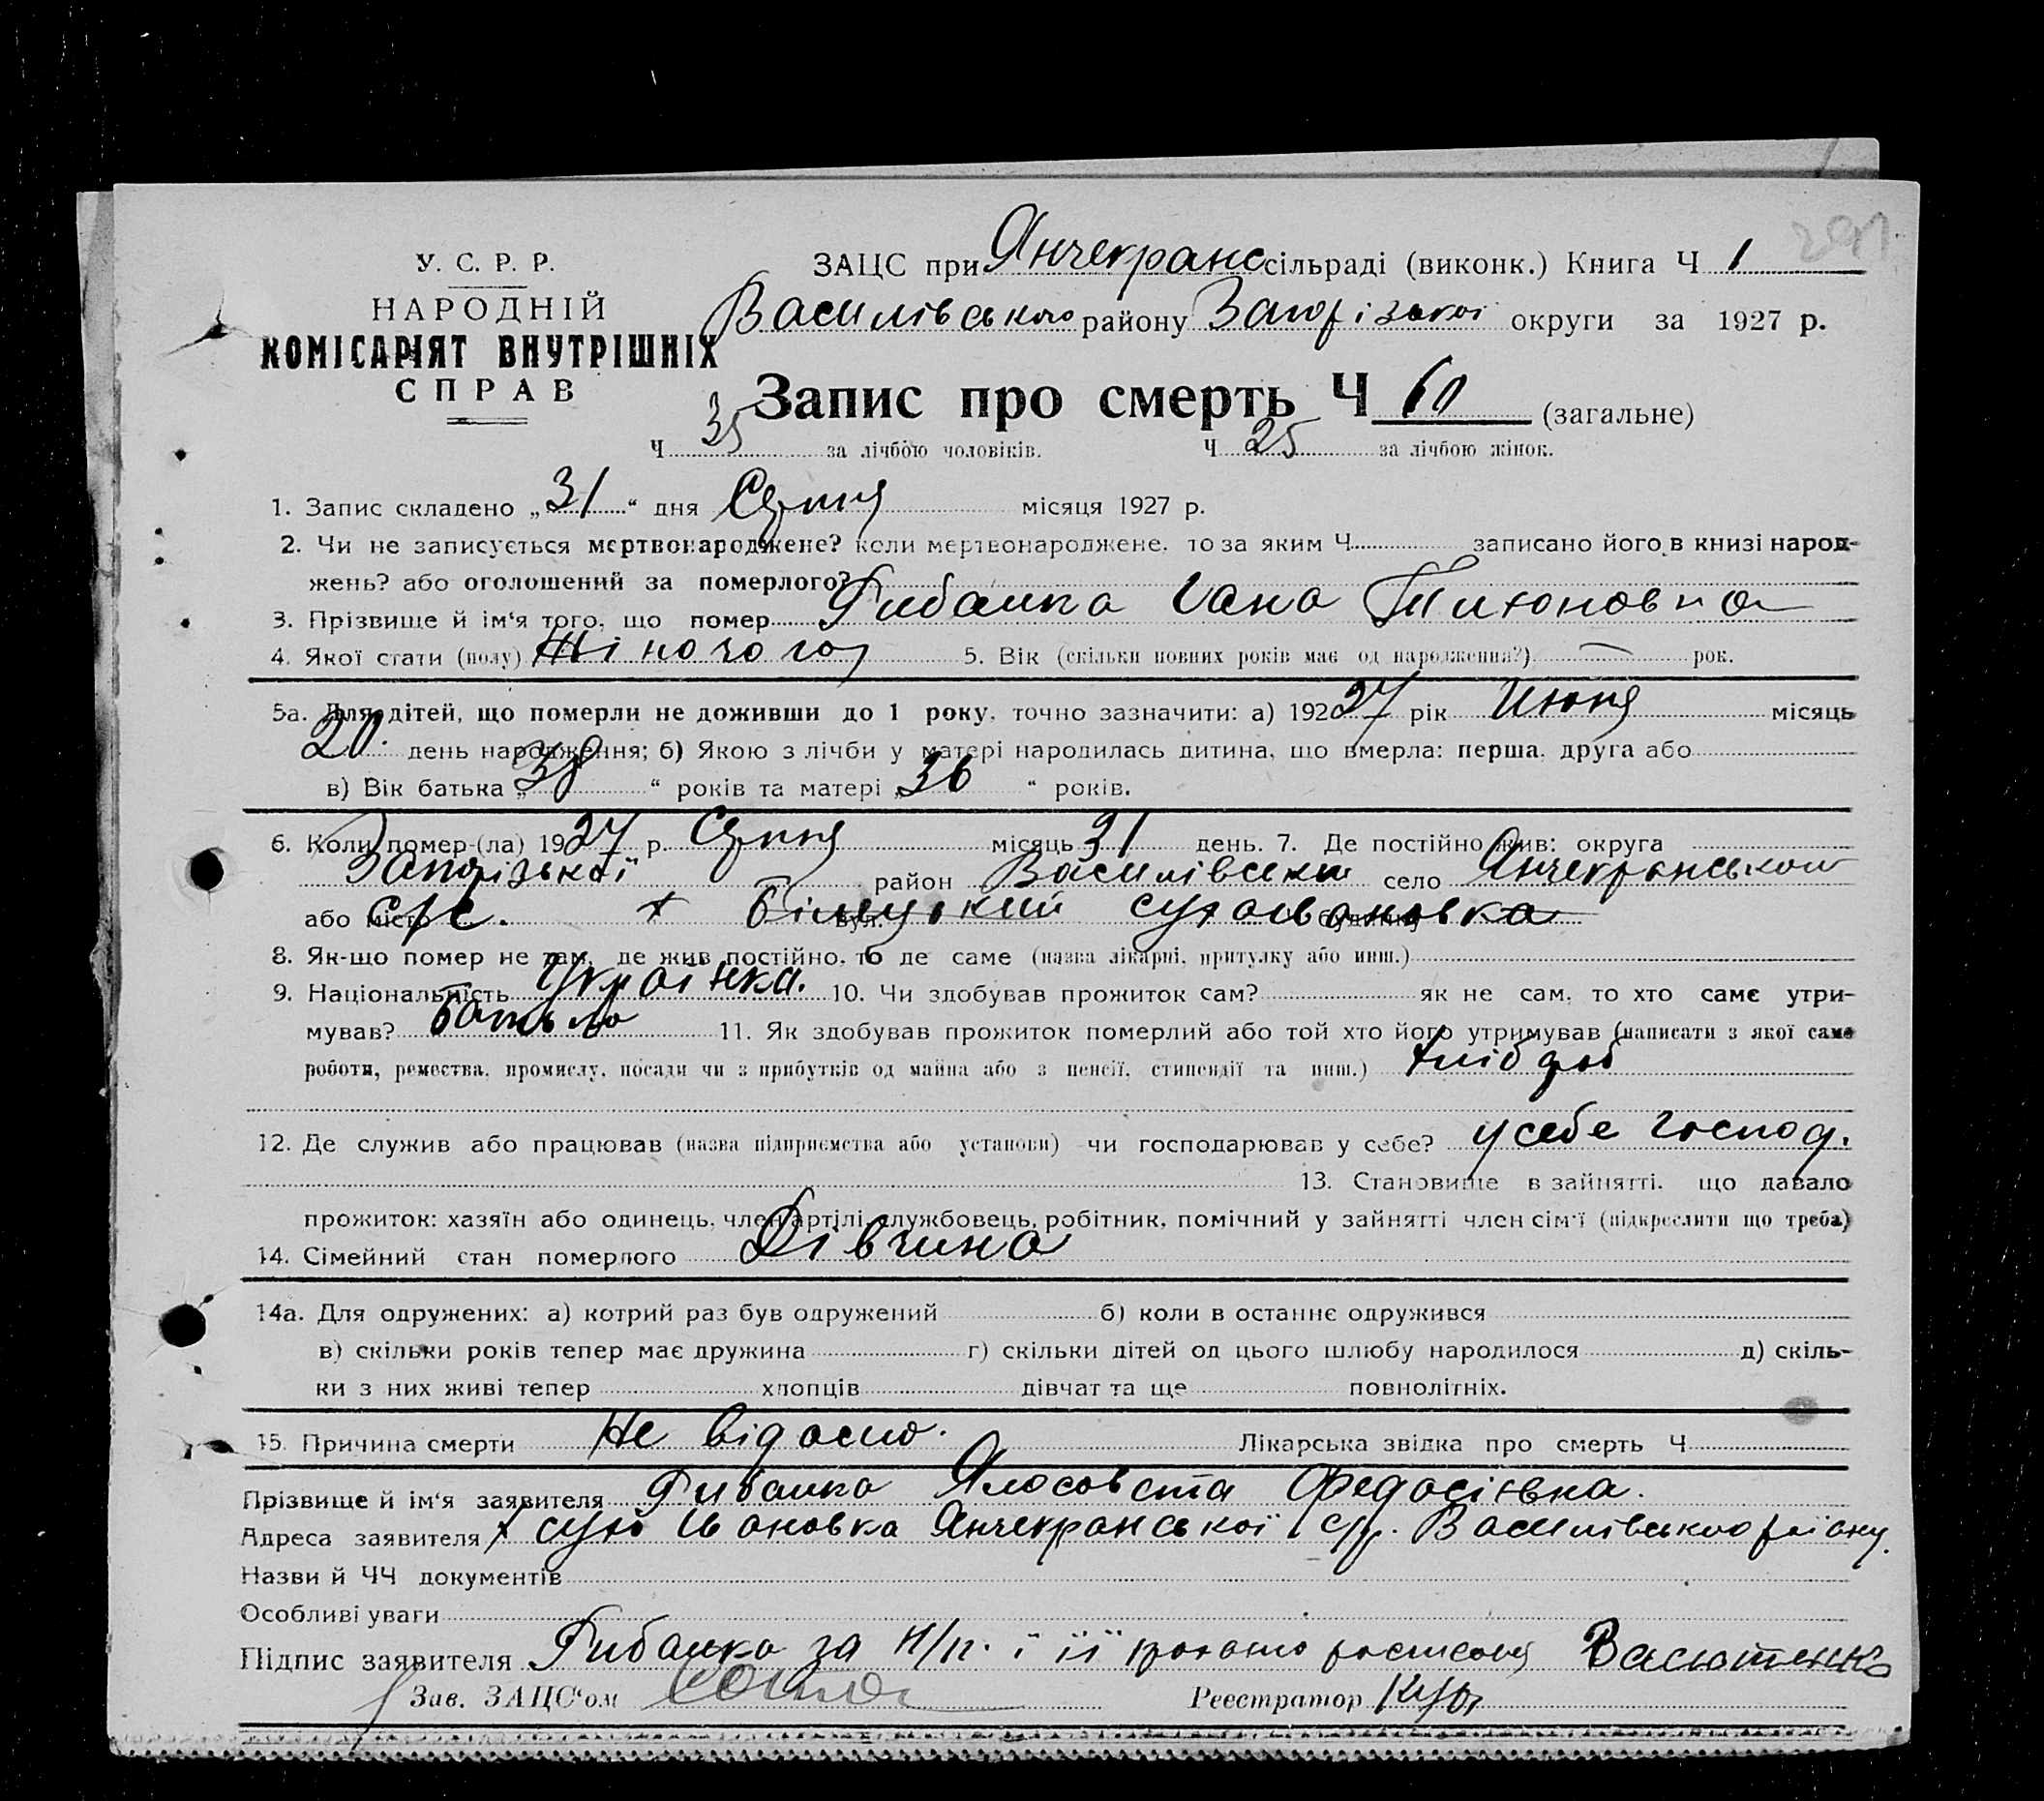 291
У. С. Р. Р.
НАРОДНІЙ
КОМІСАРІЯТ ВНУТРІШНІХ
СПРАВ
ЗАЦС при Янчекранс сільраді (виконк.) Книга Ч 1
Василівського району Запорізької округи за 1927 р.
Запис про смерть Ч 60 (загальне)
Ч 35 за лічбою чоловіків. Ч 25 за лічбою жінок.
1. Запис складено „31“ дня Серпня місяця 1927 р.
2. Чи не записується мертвонароджене? коли мертвонароджене, то за яким Ч записано його в книзі народ-
жень? або оголошений за померлого?
3. Прізвище й ім‘я того, що помер Рибалка Тихоновна
4. Якої стати (полу) Жіночого 5. Вік (скільки повних років має од народження?) — рок.
5а. Для дітей, що померли не доживши до 1 року, точно зазначити: а) 1927 рік Июня місяць
20. день народження; б) Якою з лічби у матері народилась дитина, що вмерла: перша, друга або
в) Вік батька „38“ років та матері „36“ років.
6. Коли помер-(ла) 1927 р. Серпня місяць 31 день. 7. Де постійно жив: округа
Запорізької район Василівськи село Янчекранськой
або місто с/р. х вул. будинку
8. Як-що помер не там, де жив постійно, то де саме (назва лікарні, притулку або инш.)
9. Національність Українка. 10. Чи здобував прожиток сам? як не сам, то хто саме утри-
мував? батько 11. Як здобував прожиток померлий або той хто його утримував (написати з якої саме
роботи, ремества, промислу, посади чи з прибутків од майна або з пенсії, стипендії та инш.) хлібороб
12. Де служив або працював (назва підприємства або установи) чи господарював у себе? у себе господ.
13. Становище в зайнятті, що давало
прожиток: хазяїн або одинець, член артілі, службовець, робітник, помічний у зайнятті член сім‘ї (підкреслити що треба)
14. Сімейний стан померлого Дівчина
14а. Для одружених: а) котрий раз був одружений б) коли в останнє одружився
в) скільки років тепер має дружина г) скільки дітей од цього шлюбу народилося д) скіль-
ки з них живі тепер хлопців дівчат та ще повнолітніх.
15. Причина смерти Не відомо. Лікарська звідка про смерть Ч
Прізвище й ім‘я заявителя Рибалка Ялосовета Федосіївна.
Адреса заявителя х сухо Івановка Янчекранської с/р. Василівського району.
Назви й ЧЧ документів
Особливі уваги
Підпис заявителя Рибалка за н/п. і її проханю росписався Васютенко
Зав. ЗАЦС‘ом
Реєстратор